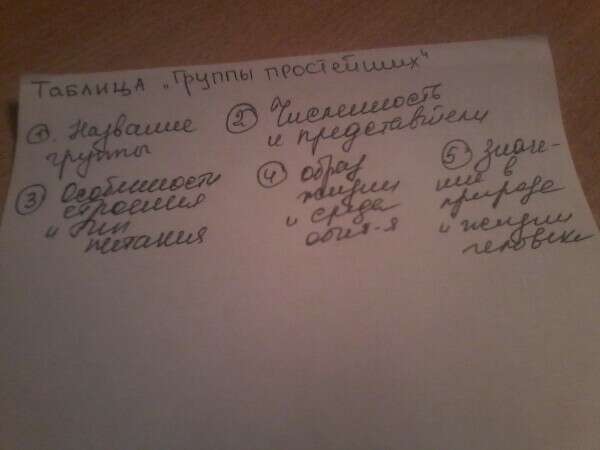 Таблица „Группы простейших"
① . Название
группы
② Численность
и представители
③ Особенности
строения
и тип
питания
④ образ
жизни
и среда
обит-я
⑤ Значе-
ние в
природе
и жизни
человека